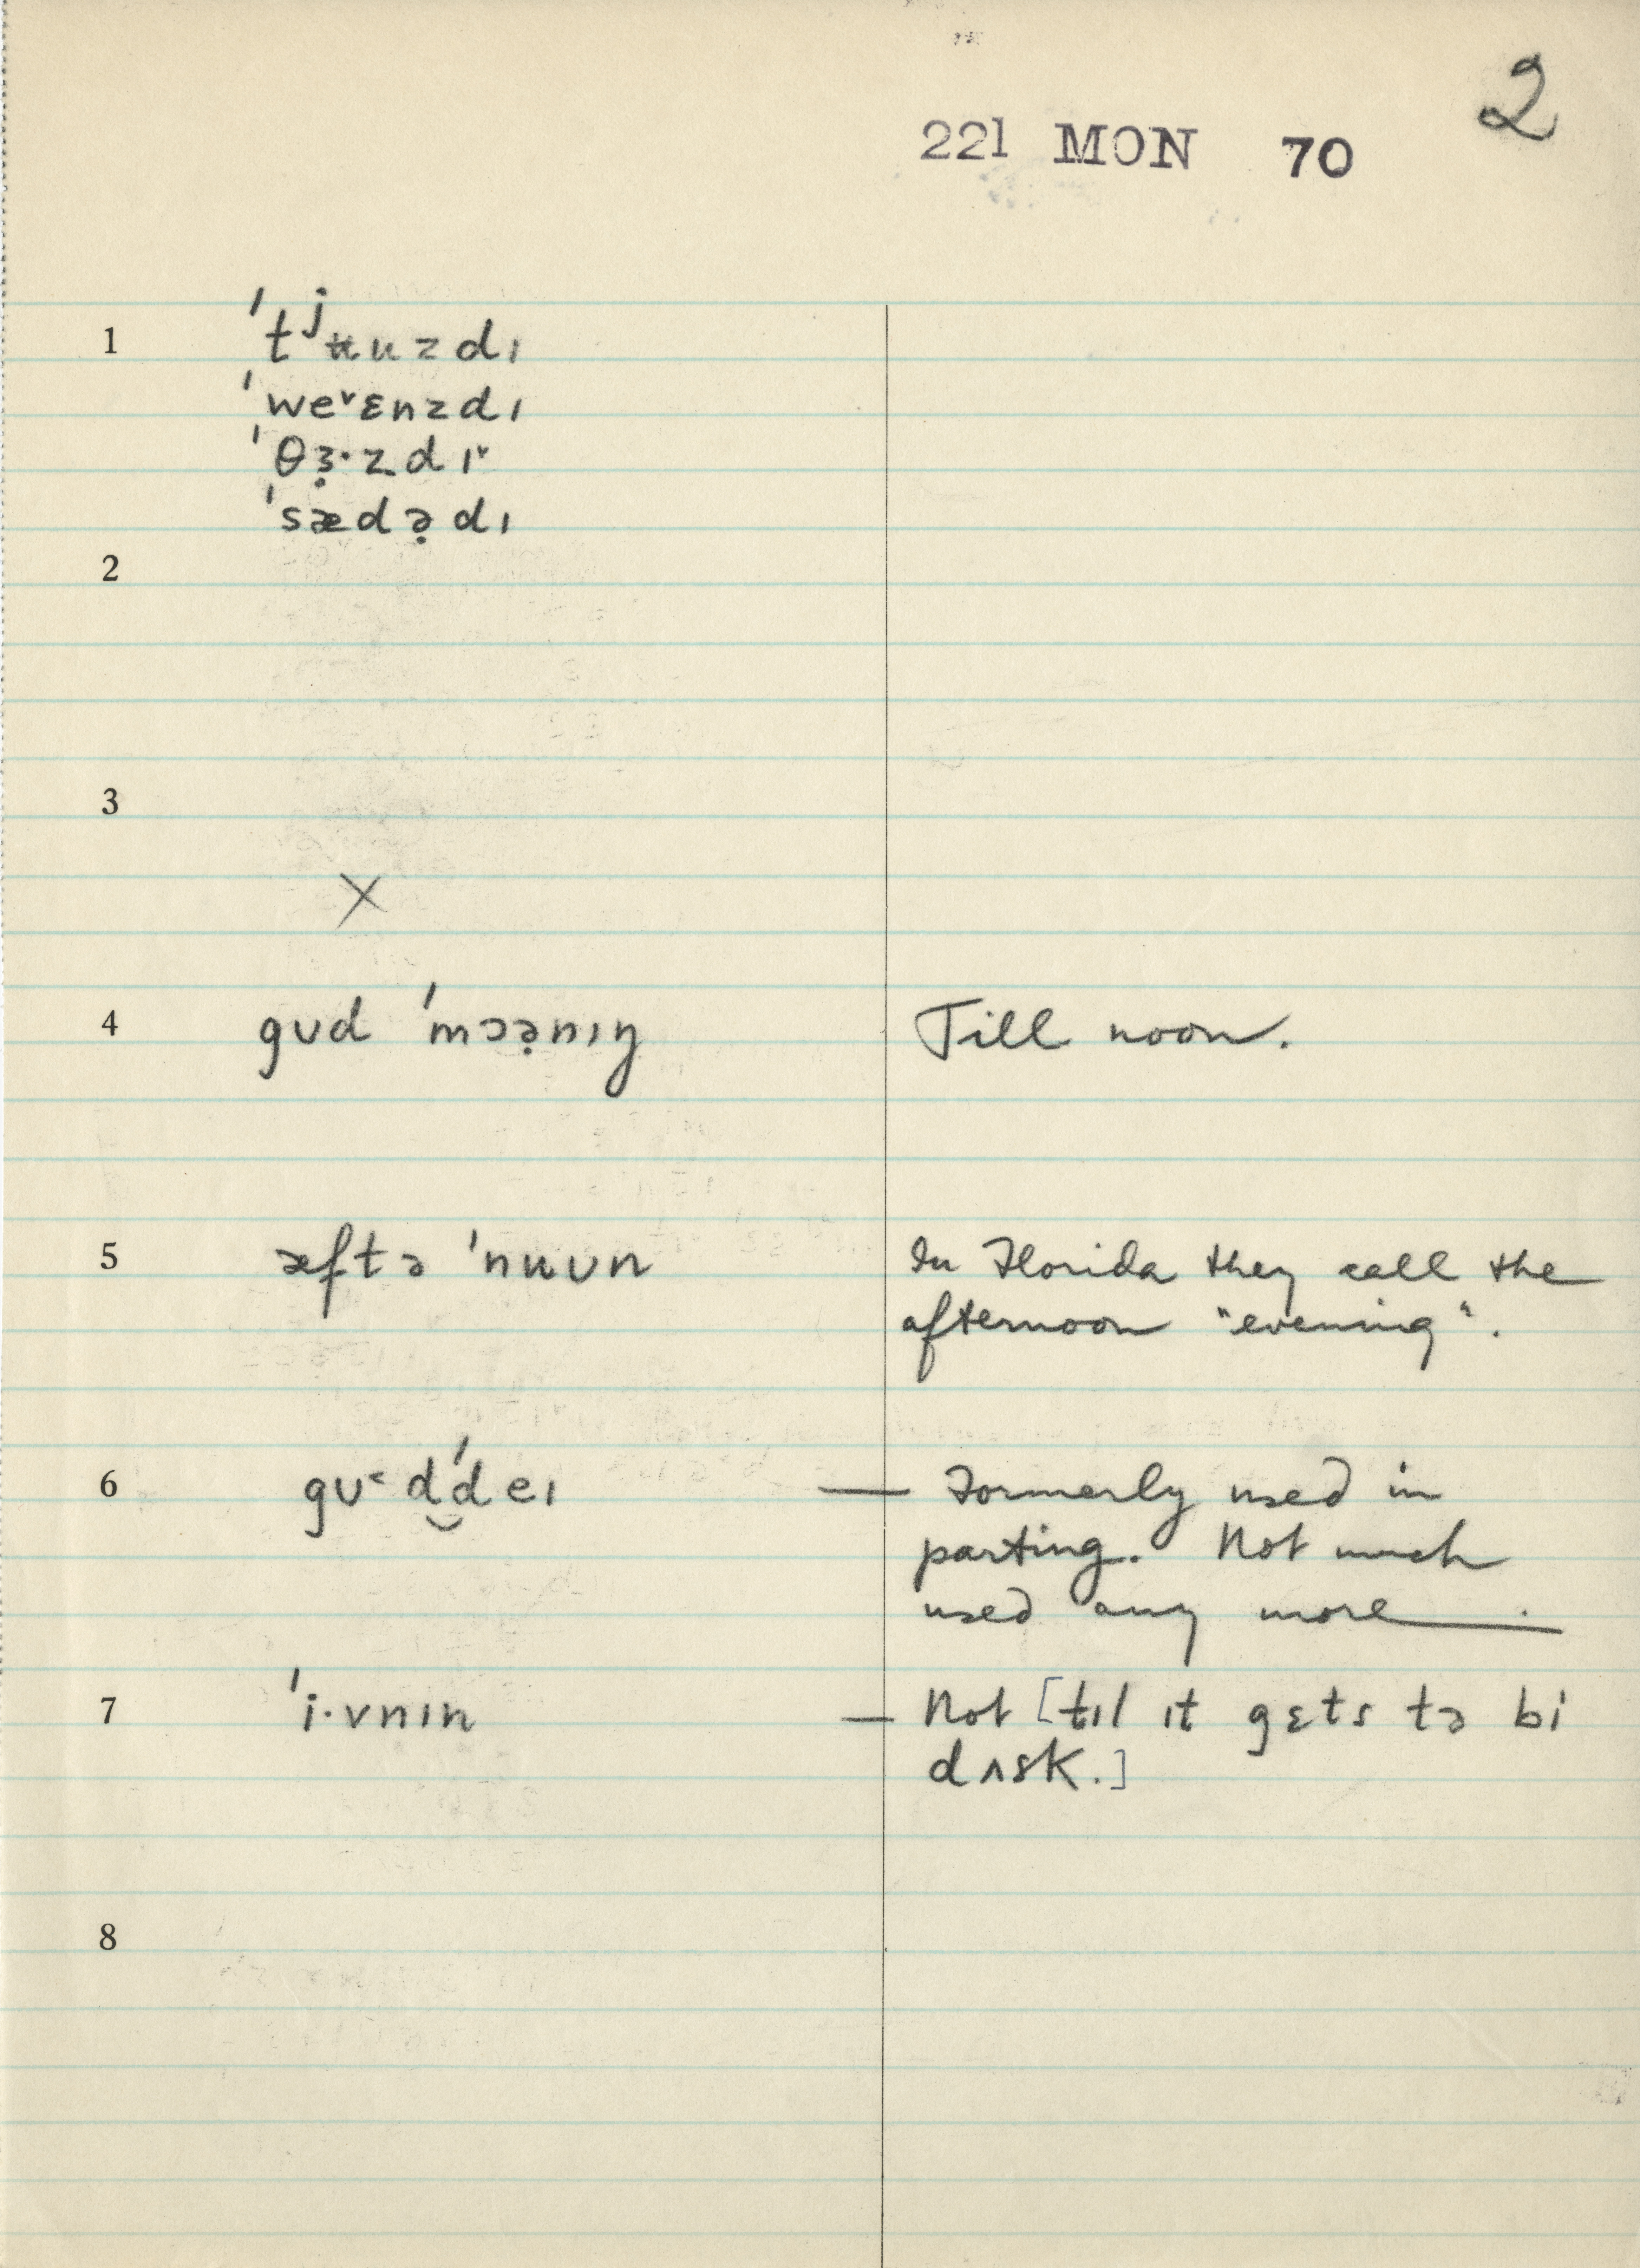 2
221 MON 70
1 ˈtʲʉuzdɪ
ˈwe˅ɛnzdɪ
ˈθɜ̣·zdɪ˅
ˈsædə̣dɪ
2
3
X
4 gʊd ˈmɔə̣nɪŋ Till noon.
5 æftə ˈnʉʊn In Florida they call the
afternoon "evening".
6 gʊ˂ d‿ˈdeɪ — Formerly used in
parting. Not much
used any more.
7 ˈi·vnɪn — Not [tɪl ɪt gɛts tə bi
dʌsk.]
8